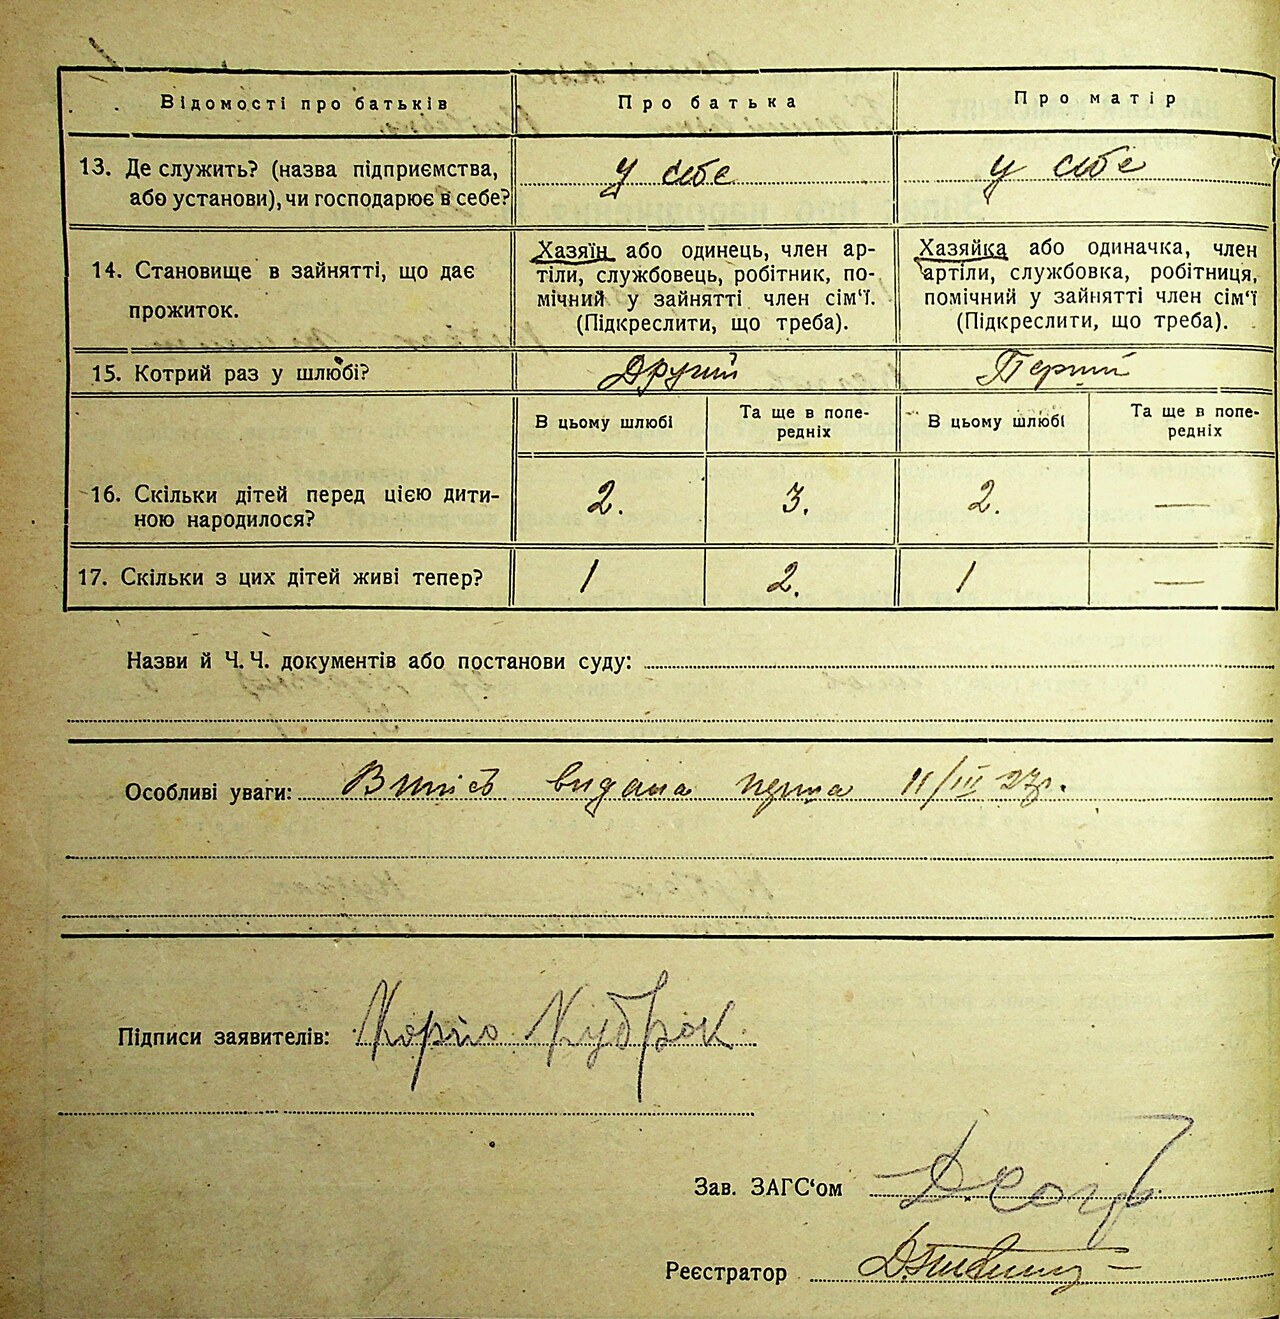 Відомості про батьків
Про батька
Про матір
13. Де служить? (назва підприємства,
або установи), чи господарює в себе?
у себе
у себе
14. Становище в зайнятті, що дає
прожиток.
Хазяїн або одинець, член ар-
тіли, службовець, робітник, по-
мічний у зайнятті член сім‘ї.
(Підкреслити, що треба).
Хазяйка або одиначка, член
артіли, службовка, робітниця,
помічний у зайнятті член сім‘ї
(Підкреслити, що треба).
15. Котрий раз у шлюбі?
Другий
Перший
В цьому шлюбі
Та ще в попе-
редніх
В цьому шлюбі
Та ще в попе-
редніх
16. Скільки дітей перед цією дити-
ною народилося?
2.
3.
2.
—
17. Скільки з цих дітей живі тепер?
1
2.
1
—
Назви й Ч. Ч. документів або постанови суду:
Особливі уваги: видана 11/III 27р.
Підписи заявителів: Кубрак
Зав. ЗАГС‘ом
Реєстратор